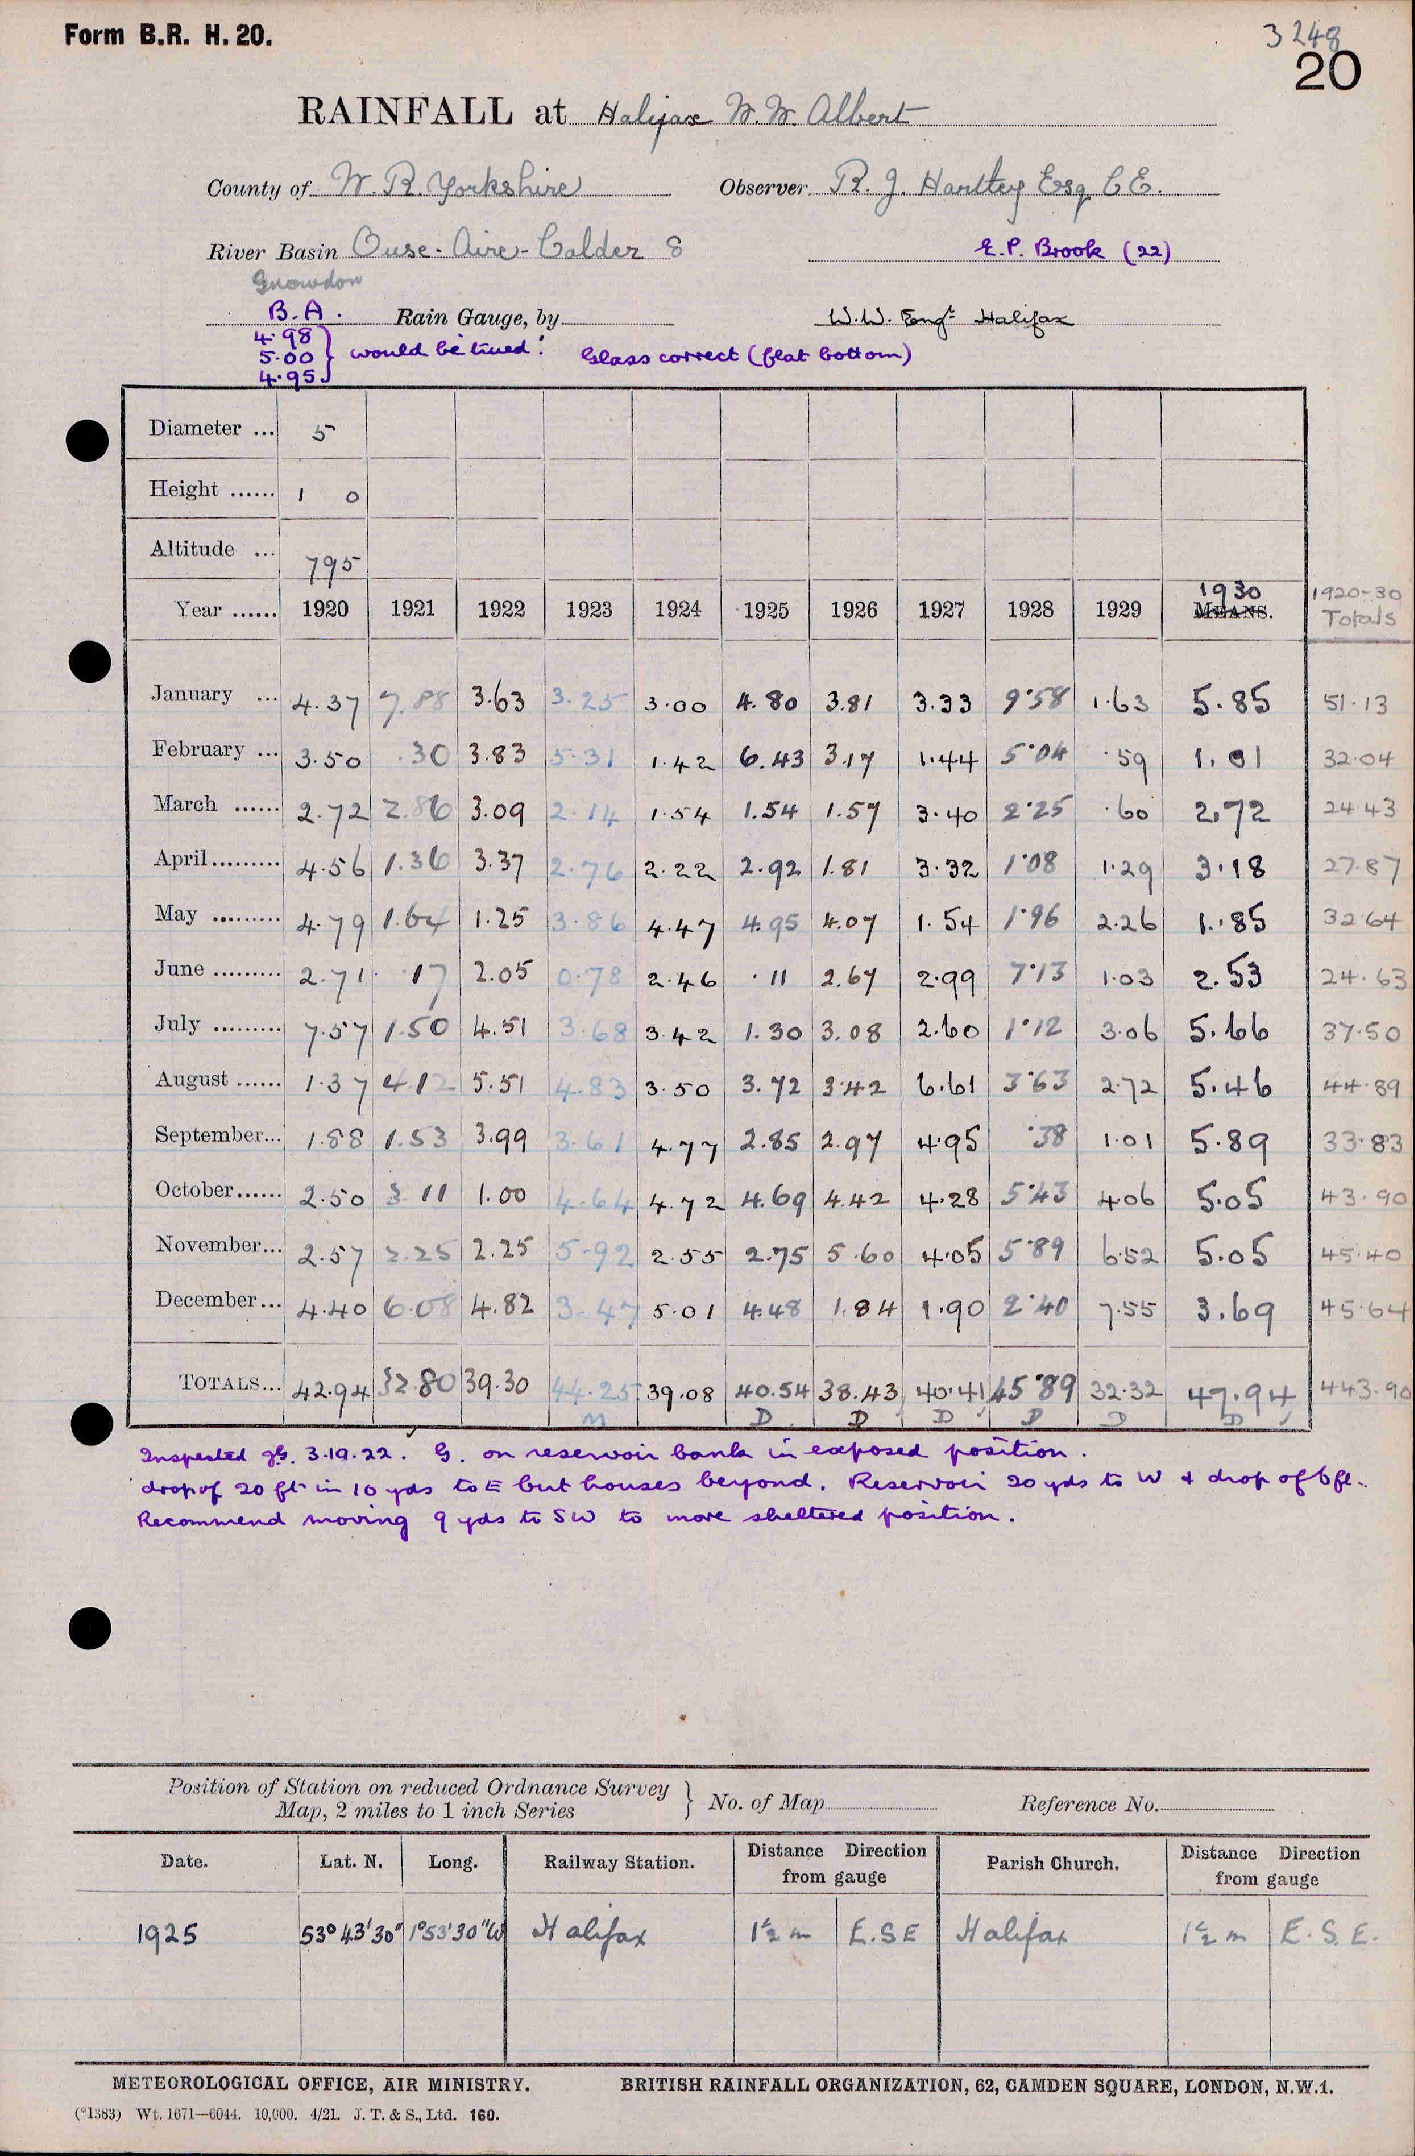 Form B.R. H. 20.
3248
20
RAINFALL at Halifax W.W. Albert
County of W. R. Yorkshire Observer R. J. Hartley Esq C.E.
River Basin Ouse - Aire - Calder 8 E.P. Brook (22)
Snowdon
B.A. Rain Gauge, by W.W. Engr Halifax
4.98
5.00 } would be trued! Glass correct (flat bottom)
4.95
Diameter ... 5
Height ...... 1 0
Altitude ... 795
Year ...... 1920 1921 1922 1923 1924 1925 1926 1927 1928 1929 1930 MEANS. 1920-30 Totals
January ... 4.37 7.88 3.63 3.25 3.00 4.80 3.81 3.33 9.58 1.63 5.85 51.13
February ... 3.50 .30 3.83 5.31 1.42 6.43 3.17 1.44 5.04 .59 1.01 32.04
March ...... 2.72 2.86 3.09 2.14 1.54 1.54 1.57 3.40 2.25 .60 2.72 24.43
April ......... 4.56 1.36 3.37 2.76 2.22 2.92 1.81 3.32 1.08 1.29 3.18 27.87
May ......... 4.79 1.64 1.25 3.86 4.47 4.95 4.07 1.54 1.96 2.26 1.85 32.64
June ......... 2.71 .17 2.05 0.78 2.46 .11 2.67 2.99 7.13 1.03 2.53 24.63
July ......... 7.57 1.50 4.51 3.68 3.42 1.30 3.08 2.60 1.12 3.06 5.66 37.50
August ...... 1.37 4.12 5.51 4.83 3.50 3.72 3.42 6.61 3.63 2.72 5.46 44.89
September... 1.88 1.53 3.99 3.61 4.77 2.85 2.97 4.95 .38 1.01 5.89 33.83
October...... 2.50 3.11 1.00 4.64 4.72 4.69 4.42 4.28 5.43 4.06 5.05 43.90
November... 2.57 2.25 2.25 5.92 2.55 2.75 5.60 4.05 5.89 6.52 5.05 45.40
December... 4.40 6.08 4.82 3.47 5.01 4.48 1.84 1.90 2.40 7.55 3.69 45.64
TOTALS... 42.94 32.80 39.30 44.25 39.08 40.54 38.43 40.41 45.89 32.32 47.94 443.90
M D D D D D D
Inspected 3.10.22. G. on reservoir bank in exposed position.
drop of 20 ft in 10 yds to E but houses beyond. Reservoir 20 yds to W & drop of 6 ft.
Recommend moving 9 yds to SW to more sheltered position.
Position of Station on reduced Ordnance Survey Map, 2 miles to 1 inch Series } No. of Map Reference No.
Date. Lat. N. Long. Railway Station. Distance Direction from gauge Parish Church. Distance Direction from gauge
1925 53° 43' 30" 1° 53' 30" W Halifax 1½ m E.S.E Halifax 1½ m E.S.E.
METEOROLOGICAL OFFICE, AIR MINISTRY. BRITISH RAINFALL ORGANIZATION, 62, CAMDEN SQUARE, LONDON, N.W.1.
(*1383) Wt. 1671—6044. 10,000. 4/21. J. T. & S., Ltd. 160.